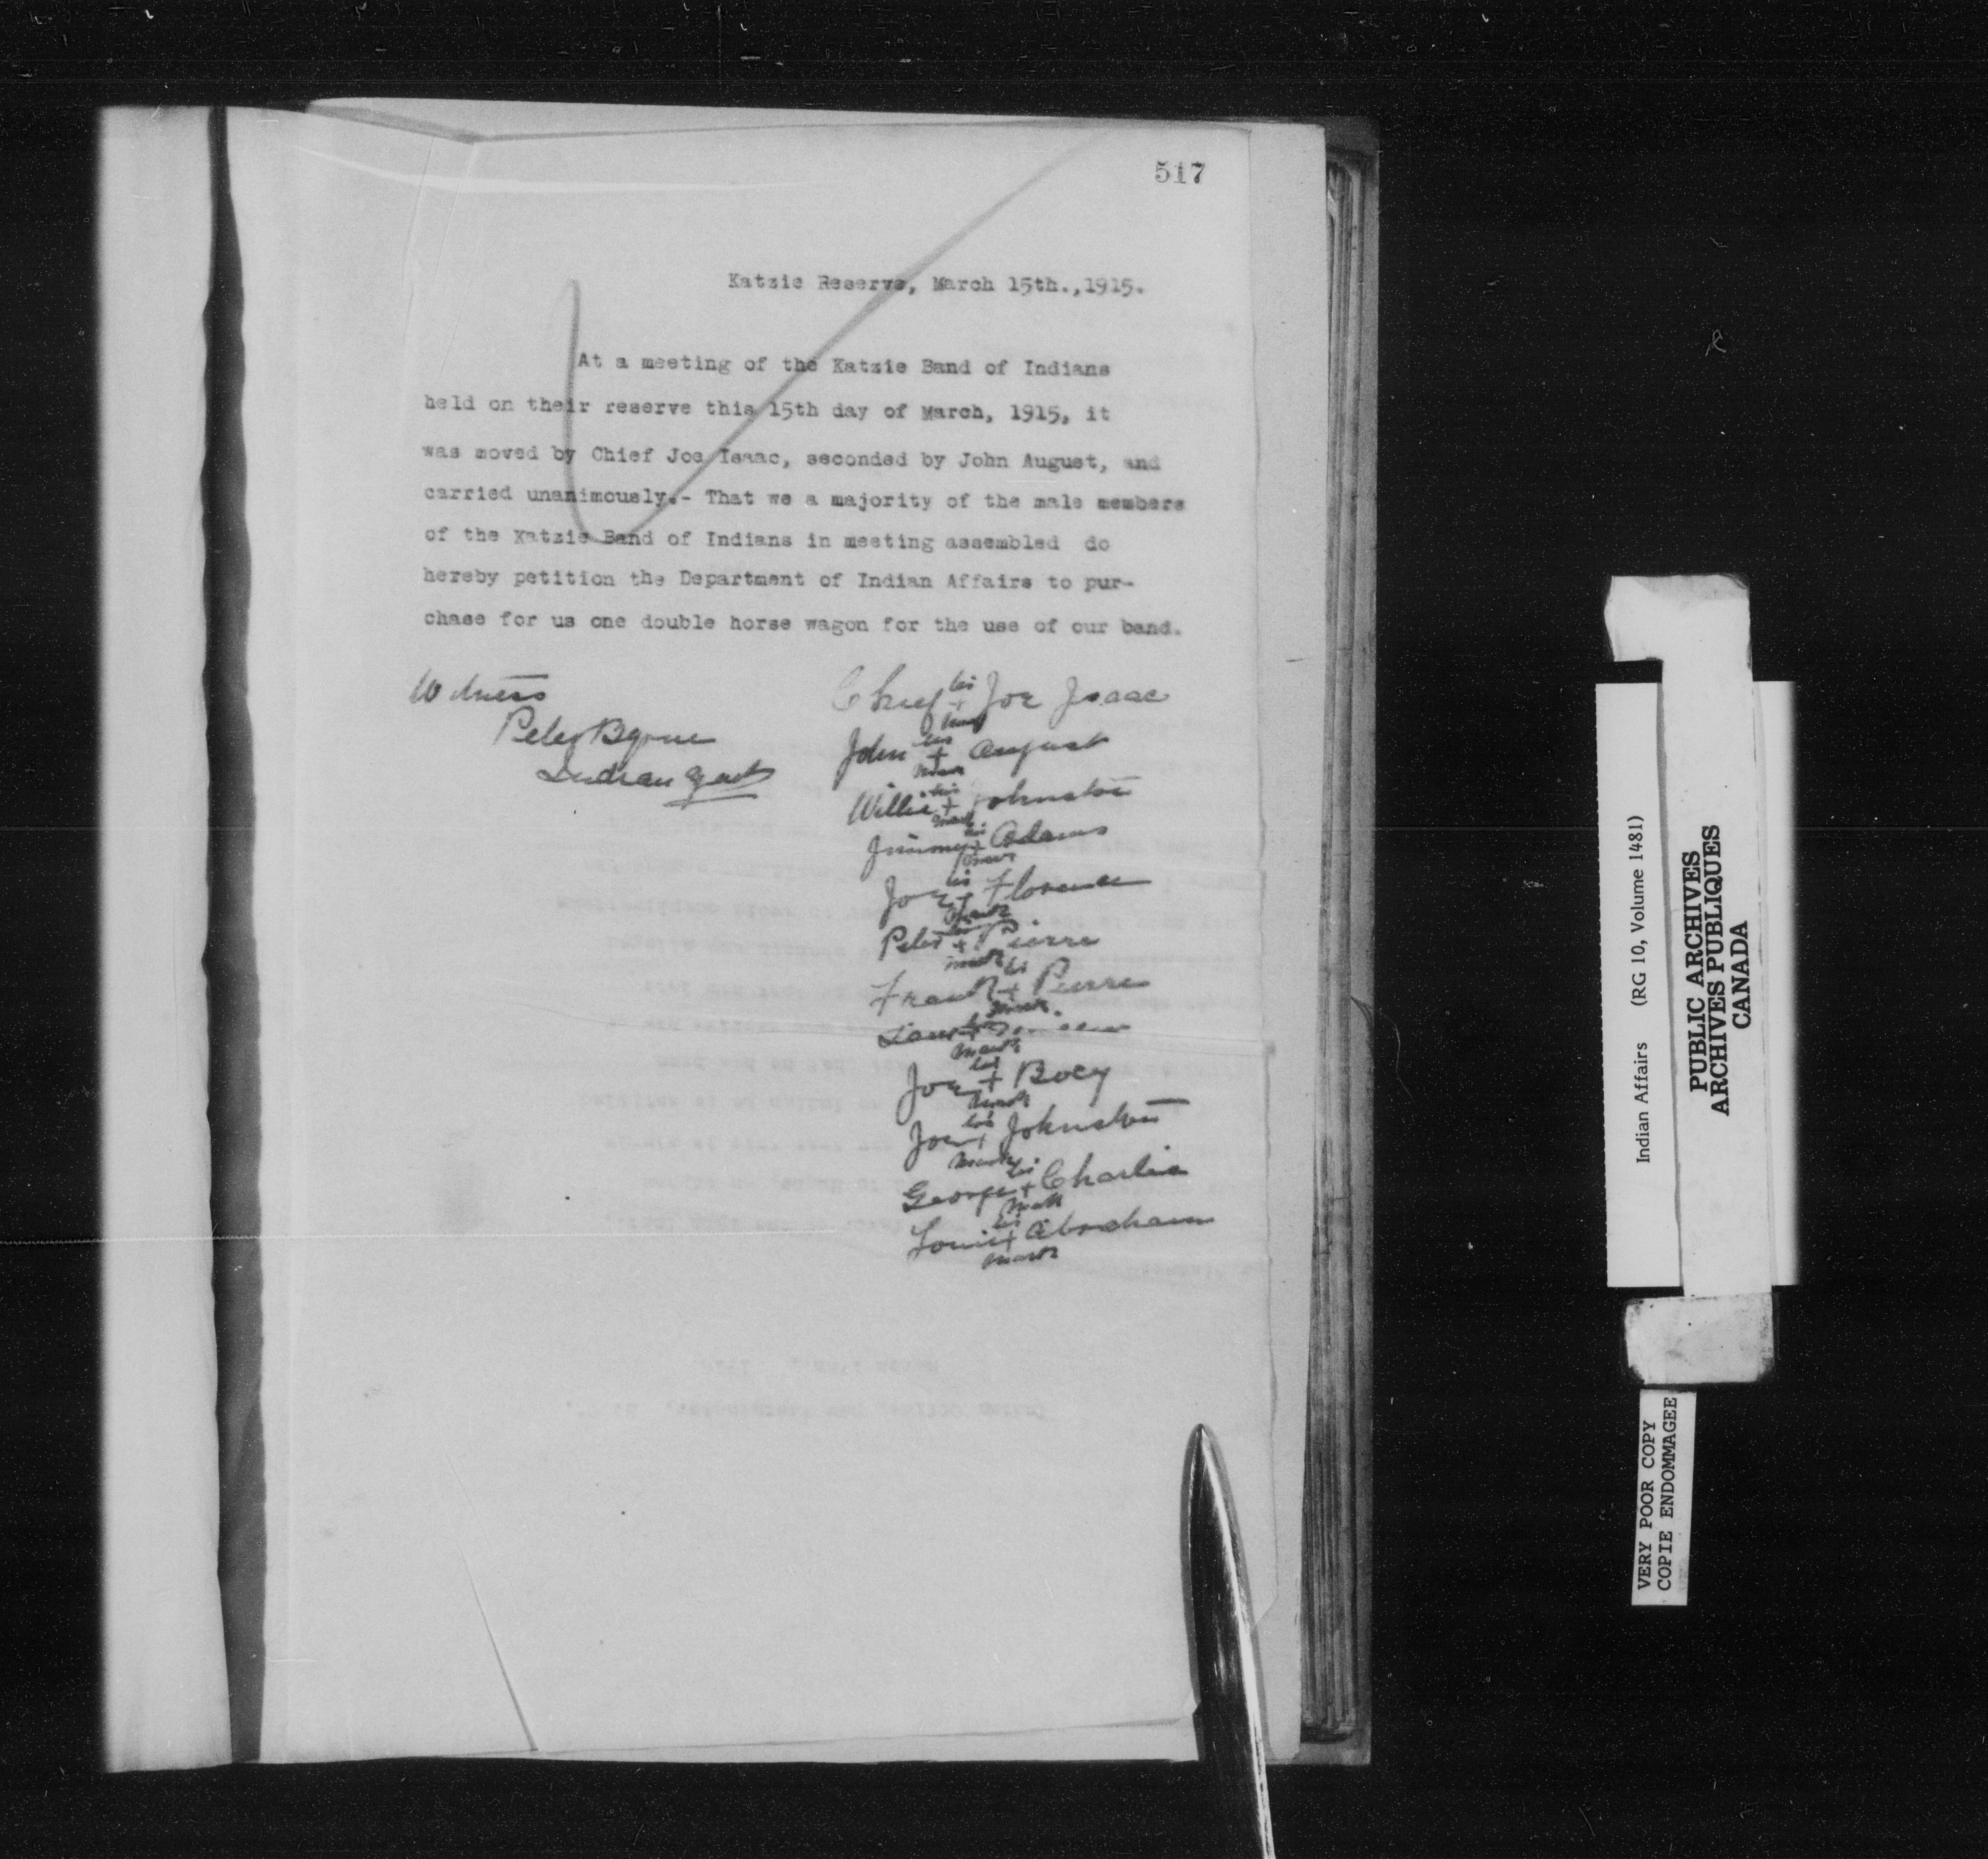 517
Katzie Reserve, March 15th.,1915.
At a meeting of the Katzie Band of Indians
held on their reserve this 15th day of March, 1915, it
was moved by Chief Joe Isaac, seconded by John August, and
carried unanimously.- That we a majority of the male members
of the Katzie Band of Indians in meeting assembled do
hereby petition the Department of Indian Affairs to pur-
chase for us one double horse wagon for the use of our band.
Witness
Peter Byrne
Indian Agent
Chief his + mark Joe Isaac
John his + mark August
Willie his + mark Johnston
Jimmy his + mark Adams
Joe his + mark Florence
Peter his + mark Pierre
Frank his + mark Pierre
his + mark
Joe his + mark Bocy
Joe his + mark Johnston
George his + mark Charlie
Louie his + mark Abraham
Indian Affairs (RG 10, Volume 1481)
PUBLIC ARCHIVES
ARCHIVES PUBLIQUES
CANADA
VERY POOR COPY
COPIE ENDOMMAGEE